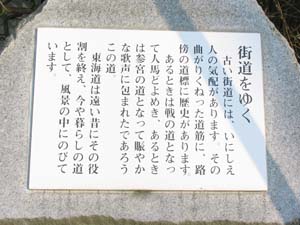 街道をゆく
古い街道には、いにしえ
人の気配があります。その
曲がりくねった道筋に、路
傍の道標に歴史があります
あるときは戦の道となっ
て人馬どよめき、あるとき
は参宮の道となって賑やか
な歌声に包まれたであろう
この道
東海道は遠い昔にその役
割を終え、今や暮らしの道
として、風景の中にのびて
います。